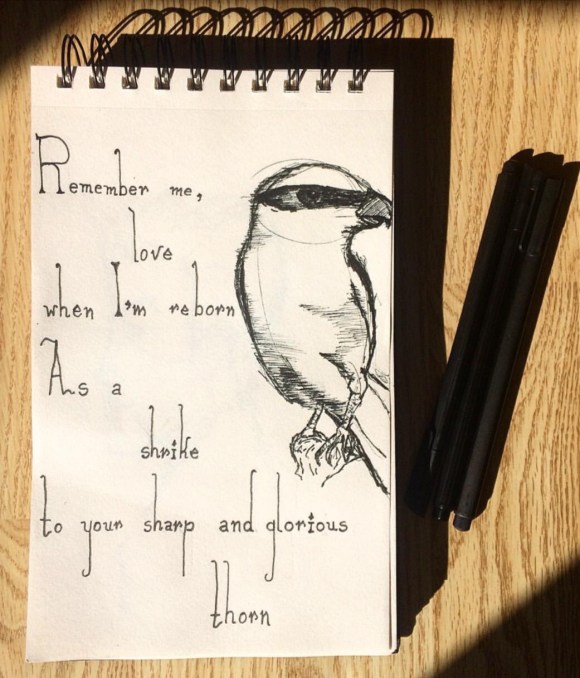 Remember me,
love
when I'm reborn
As a
shrike
to your sharp and glorious
thorn